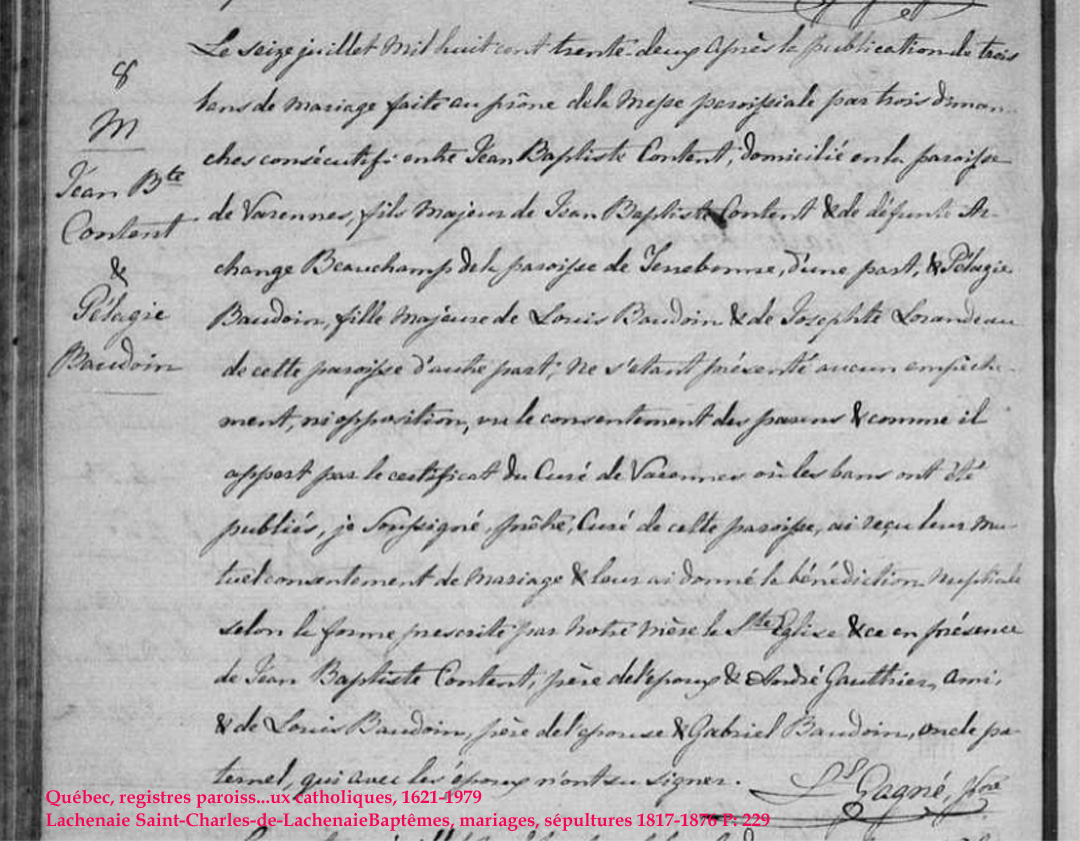 8
M
Jean Bte
Content
&
Pélagie
Baudoin
Le seize juillet mil huit cent trente-deux après la publication de trois
bans de mariage faite au prône de la Messe paroissiale par trois diman-
ches consécutifs entre Jean Baptiste Content, domicilié en la paroisse
de Varennes, fils majeur de Jean Baptiste Content & de défunte Ar-
change Beauchamp de la paroisse de Terrebonne, d'une part, & Pélagie
Baudoin, fille majeure de Louis Baudoin & de Josephte Lorandeau
de cette paroisse d'autre part; ne s'etant présenté aucun empêche-
ment, ni opposition, vu le consentement des parens & comme il
appert par le certificat du Curé de Varennes où les bans ont été
publiés, je Soussigné, prêtre, Curé de cette paroisse, ai reçu leur mu-
tuel consentement de mariage & leur ai donné la bénédiction nuptiale
selon la forme prescrite par notre mère la Ste Eglise & ce en présence
de Jean Baptiste Content, père de l'epoux & André Gauthier, ami,
& de Louis Baudoin, père de l'epouse & Gabriel Baudoin, oncle pa-
ternel, qui avec les époux n'ont su signer.
Ls Gagné, Ptre
Québec, registres paroiss...ux catholiques, 1621-1979
Lachenaie Saint-Charles-de-LachenaieBaptêmes, mariages, sépultures 1817-1876 P: 229